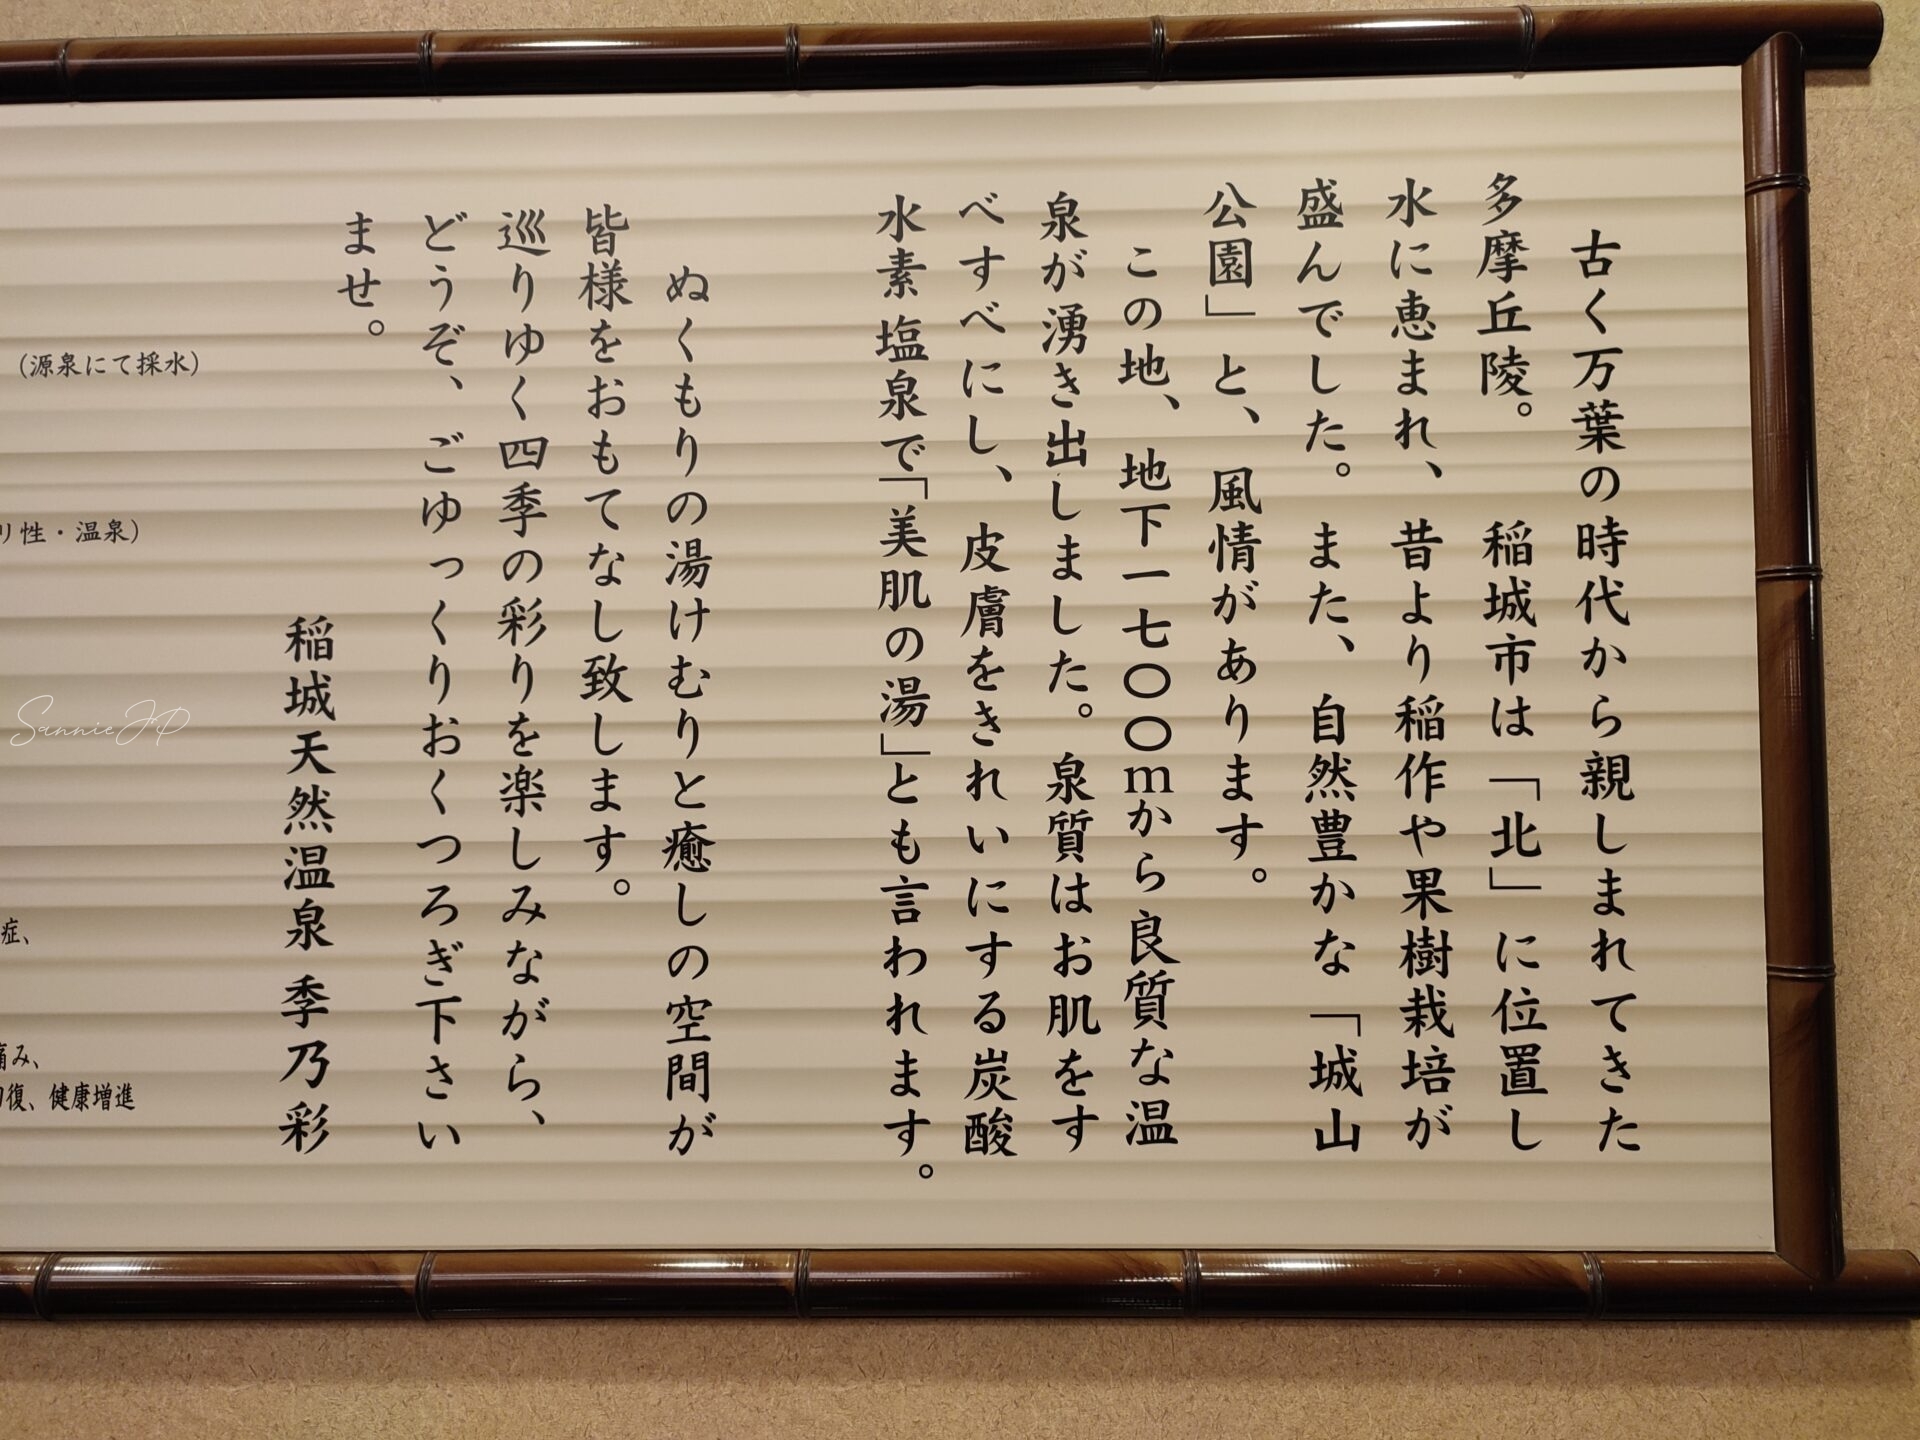 古く万葉の時代から親しまれてきた
多摩丘陵。　稲城市は「北」に位置し
水に恵まれ、昔より稲作や果樹栽培が
盛んでした。また、自然豊かな「城山
公園」と、風情があります。
この地、地下一七〇〇mから良質な温
泉が湧き出しました。泉質はお肌をす
べすべにし、皮膚をきれいにする炭酸
水素塩泉で「美肌の湯」とも言われます。
ぬくもりの湯けむりと癒しの空間が
皆様をおもてなし致します。
巡りゆく四季の彩りを楽しみながら、
どうぞ、ごゆっくりおくつろぎ下さい
ませ。
稲城天然温泉 季乃彩
(源泉にて採水)
リ性・温泉)
症、
痛み、
復、健康増進
SannieJP